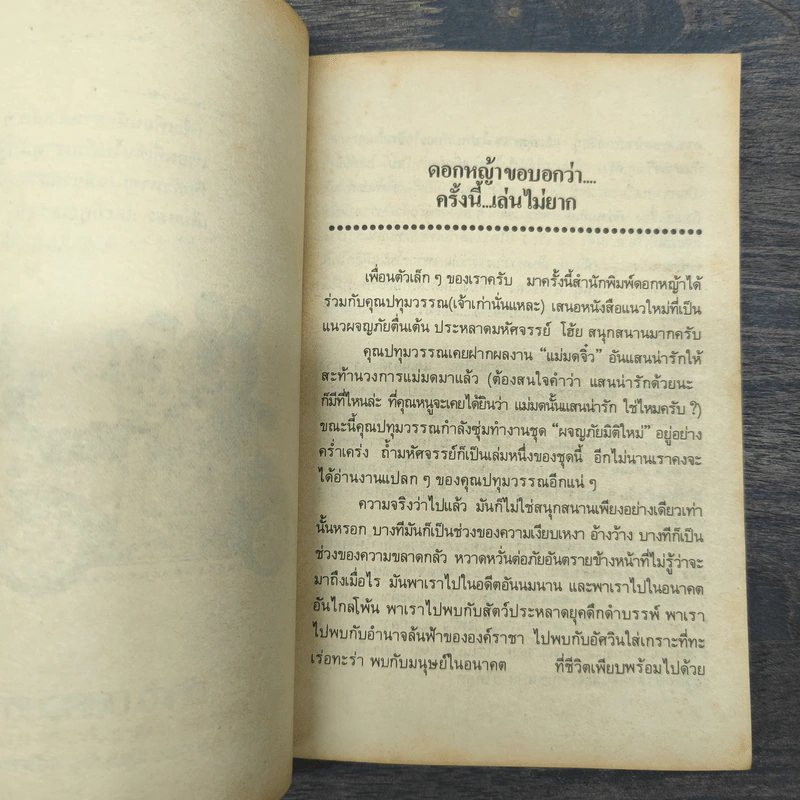 ดอกหญ้าขอบอกว่า....
ครั้งนี้...เล่นไม่ยาก
เพื่อนตัวเล็ก ๆ ของเราครับ มาครั้งนี้สำนักพิมพ์ดอกหญ้าได้
ร่วมกับคุณปทุมวรรณ(เจ้าเก่านั่นแหละ) เสนอหนังสือแนวใหม่ที่เป็น
แนวผจญภัยตื่นเต้น ประหลาดมหัศจรรย์ โฮ้ย สนุกสนานมากครับ
คุณปทุมวรรณเคยฝากผลงาน “แม่มดจิ๋ว” อันแสนน่ารักให้
สะท้านวงการแม่มดมาแล้ว (ต้องสนใจคำว่า แสนน่ารักด้วยนะ
ก็มีที่ไหนล่ะ ที่คุณหนูจะเคยได้ยินว่า แม่มดนั้นแสนน่ารัก ใช่ไหมครับ ?)
ขณะนี้คุณปทุมวรรณกำลังซุ่มทำงานชุด “ผจญภัยมิติใหม่” อยู่อย่าง
คร่ำเคร่ง ถ้ำมหัศจรรย์ก็เป็นเล่มหนึ่งของชุดนี้ อีกไม่นานเราคงจะ
ได้อ่านงานแปลก ๆ ของคุณปทุมวรรณอีกแน่ ๆ
ความจริงว่าไปแล้ว มันก็ไม่ใช่สนุกสนานเพียงอย่างเดียวเท่า
นั้นหรอก บางทีมันก็เป็นช่วงของความเงียบเหงา อ้างว้าง บางทีก็เป็น
ช่วงของความขลาดกลัว หวาดหวั่นต่อภัยอันตรายข้างหน้าที่ไม่รู้ว่าจะ
มาถึงเมื่อไร มันพาเราไปในอดีตอันนมนาน และพาเราไปในอนาคต
อันไกลโพ้น พาเราไปพบกับสัตว์ประหลาดยุคดึกดำบรรพ์ พาเรา
ไปพบกับอำนาจล้นฟ้าขององค์ราชา ไปพบกับอัศวินใส่เกราะที่ทะ
เร่อทะร่า พบกับมนุษย์ในอนาคต ที่ชีวิตเพียบพร้อมไปด้วย